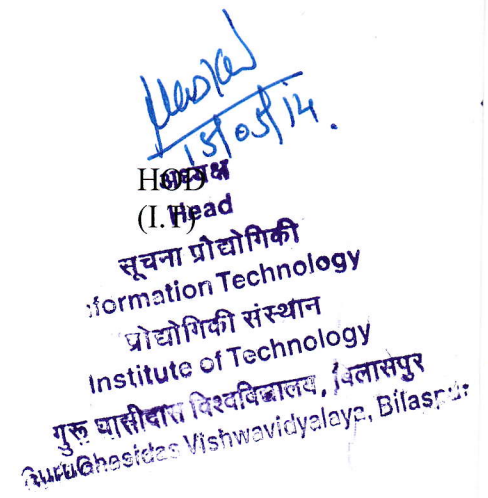 15/05/14.
HOD
अध्यक्ष
(I.T)
Head
सूचना प्रौद्योगिकी
Information Technology
प्रौद्योगिकी संस्थान
Institute of Technology
गुरू घासीदास विश्वविद्यालय, बिलासपुर
Guru Ghasidas Vishwavidyalaya, Bilaspur